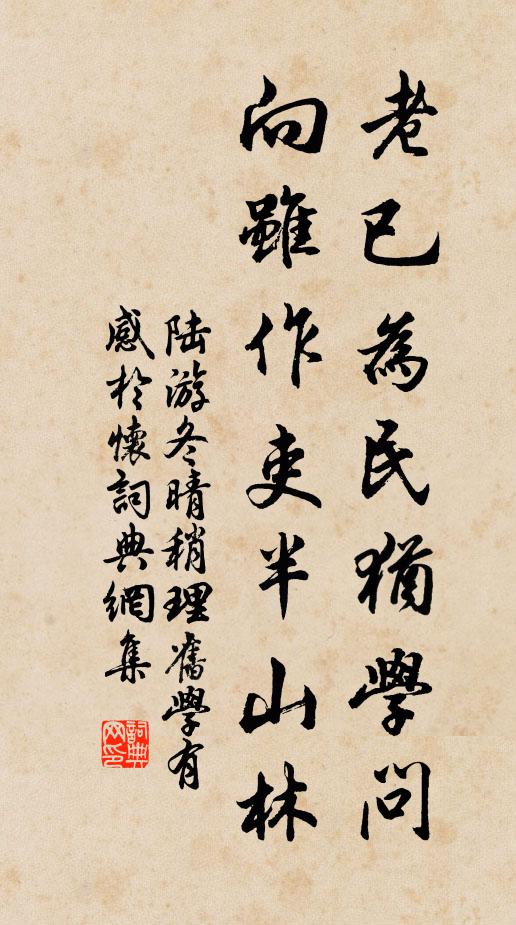 老已為民猶學問
向雖作吏半山林
陸游冬晴稍理舊學有
感於懷詞典網集
詞典
网印